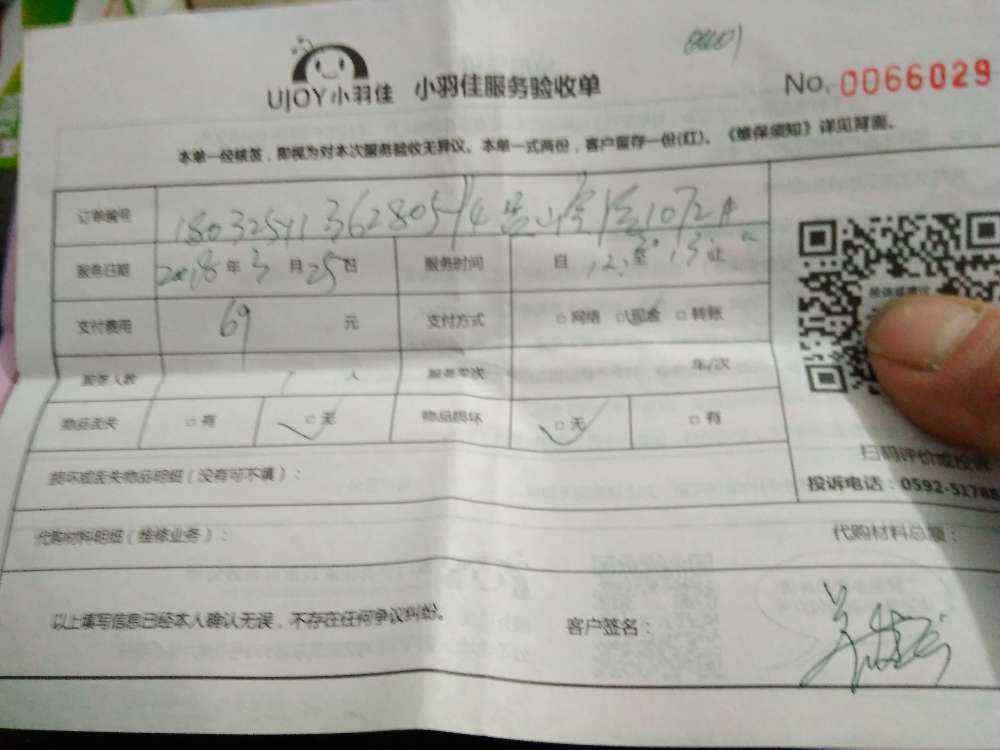 UJOY小羽佳 小羽佳服务验收单 No. 0066029
本单一经核签，即视为对本次服务验收无异议。本单一式两份，客户留存一份(红)。《维保须知》详见背面。
订单编号 1072A
服务日期 2018年3月25日 服务时间 自12至13止
支付费用 69元 支付方式 □网络 □现金 □转账
服务人数 人 服务年次 年/次
物品丢失 □有 □无 物品损坏 □无 □有
扫码评价或投诉
投诉电话：0592-51788
损坏或丢失物品明细（没有可不填）：
代购材料明细（维修业务）： 代购材料总额：
以上填写信息已经本人确认无误，不存在任何争议纠纷。 客户签名：